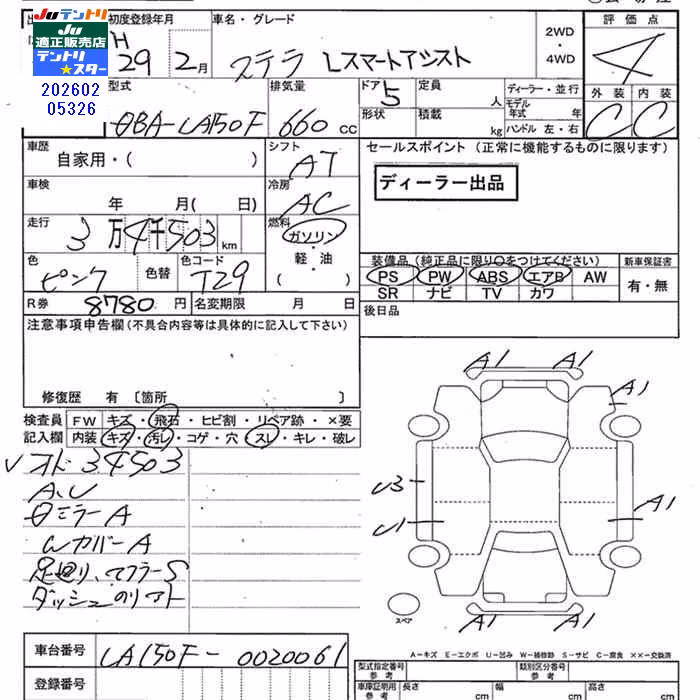 Juテントリ Juテントリ
適正販売店
テントリ
★スター
202602
05326
初度登録年月 車名・グレード 2WD・4WD 評価点
H29 2月 ステラ Lスマートアシスト 4
型式 排気量 ドア 定員 ディーラー・並行 外装 内装
DBA-LA150F 660 CC 5 人 モデル年式 年 C C
形状 積載 kg ハンドル 左・右
車歴 シフト セールスポイント (正常に機能するものに限ります)
自家用・( ) AT
ディーラー出品
車検 冷房
年 月( 日) AC
走行 燃料
3万4千503km ガソリン
軽・油
( )
色 色替 色コード
ピンク T29
装備品(純正品に限り○をつけてください) 新車保証書
PS PW ABS エアB AW 有・無
SR ナビ TV カワ
R券 8780円 名変期限 月 日 後日品
注意事項申告欄(不具合内容等は具体的に記入して下さい)
修復歴 有 〔箇所 〕
検査員 FW キズ・飛石・ヒビ割・リペア跡・×要
記入欄 内装 キズ・汚レ・コゲ・穴・スレ・キレ・破レ
✓オド 34503
A、U
Dミラー A
Wカバー A
足廻り、マフラーS
ダッシュのリアト
A1 A1
A1
U3
U1 A1
A1 A1
スペア
A－キズ E－エクボ U－凹み W－補修跡 S－サビ C－腐食 ××－交換済
車台番号 LA150F-0020061
登録番号
型式指定番号 参考 類別区分番号 参考
車庫証明用 参考 長さ cm 幅 cm 高さ cm